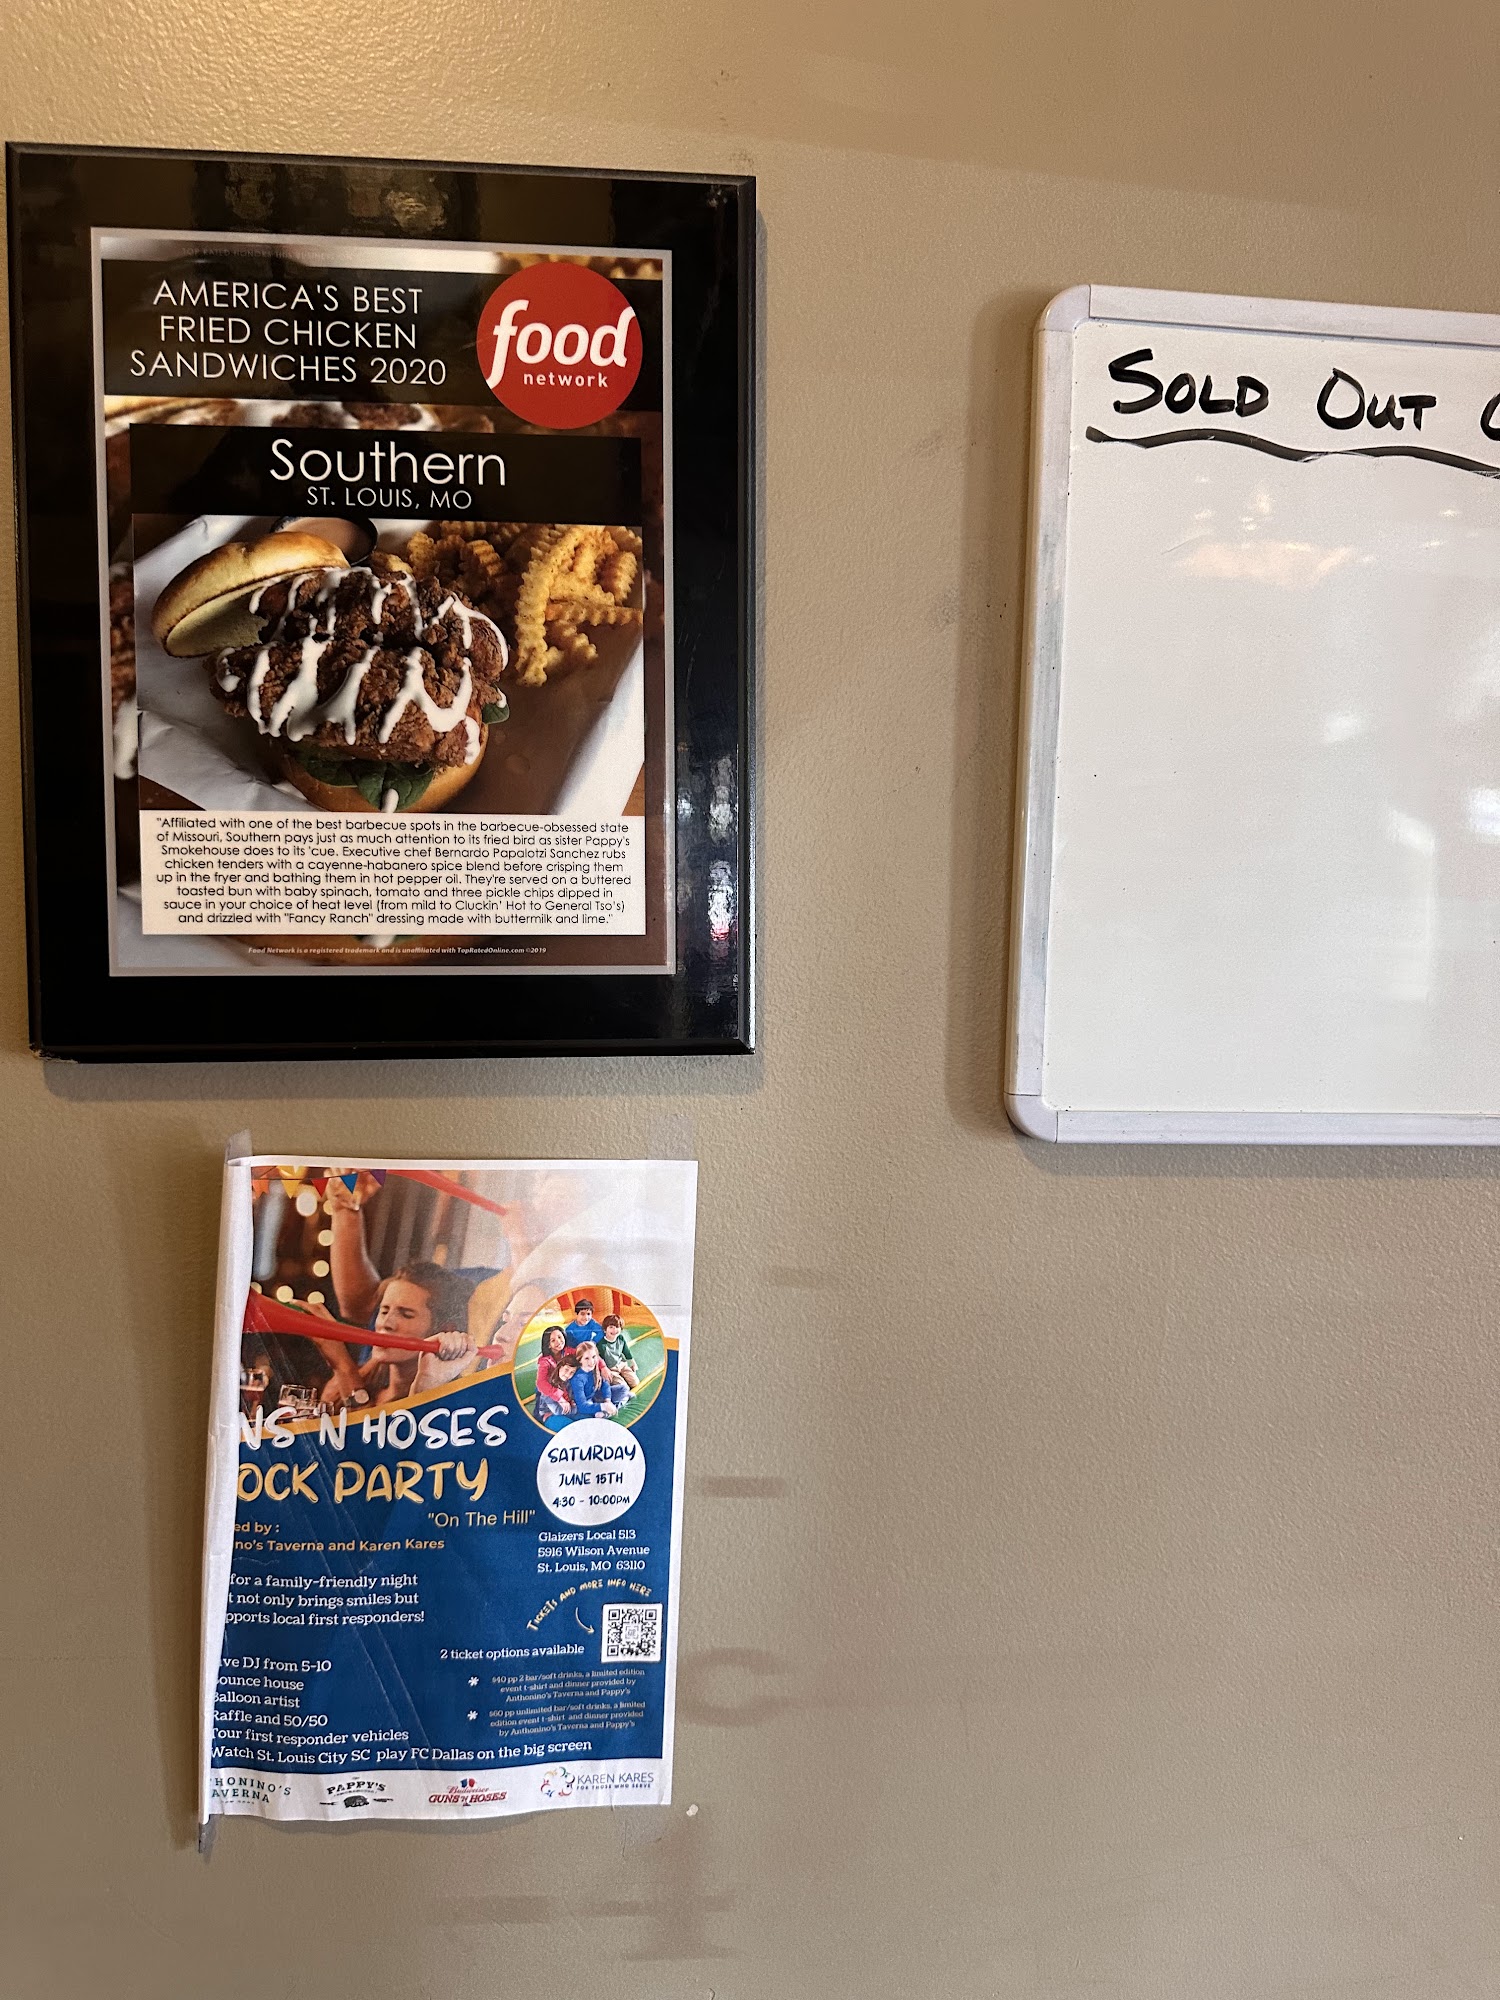 AMERICA'S BEST
FRIED CHICKEN
SANDWICHES 2020
food
network
Southern
ST. LOUIS, MO
"Affiliated with one of the best barbecue spots in the barbecue-obsessed state
of Missouri, Southern pays just as much attention to its fried bird as sister Pappy's
Smokehouse does to its 'cue. Executive chef Bernardo Papalotzi Sanchez rubs
chicken tenders with a cayenne-habanero spice blend before crisping them
up in the fryer and bathing them in hot pepper oil. They're served on a buttered
toasted bun with baby spinach, tomato and three pickle chips dipped in
sauce in your choice of heat level (from mild to Cluckin' Hot to General Tso's)
and drizzled with "Fancy Ranch" dressing made with buttermilk and lime."
Food Network is a registered trademark and is unaffiliated with TopRatedOnline.com ©2019
SOLD OUT
NS N HOSES
OCK PARTY
"On The Hill"
ed by :
no's Taverna and Karen Kares
for a family-friendly night
t not only brings smiles but
pports local first responders!
ve DJ from 5-10
ounce house
Balloon artist
Raffle and 50/50
Tour first responder vehicles
Watch St. Louis City SC play FC Dallas on the big screen
SATURDAY
JUNE 15TH
4:30 - 10:00PM
Glaizers Local 513
5916 Wilson Avenue
St. Louis, MO 63110
TICKETS AND MORE INFO HERE
2 ticket options available
* $40 pp 2 bar/soft drinks, a limited edition
event t-shirt and dinner provided by
Anthonino's Taverna and Pappy's
* $60 pp unlimited bar/soft drinks, a limited
edition event t-shirt and dinner provided
by Anthonino's Taverna and Pappy's
THONINO'S
AVERNA
PAPPY'S
Budweiser
GUNS 'N HOSES
KAREN KARES
FOR THOSE WHO SERVE